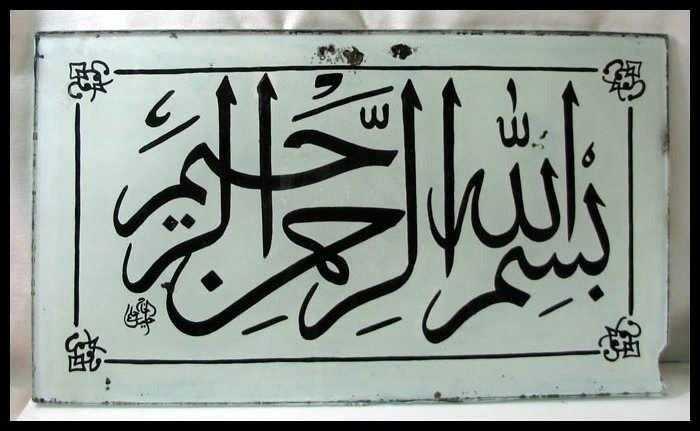 بِسْمِ اللّٰه الرَّحمن الرَّحِيم